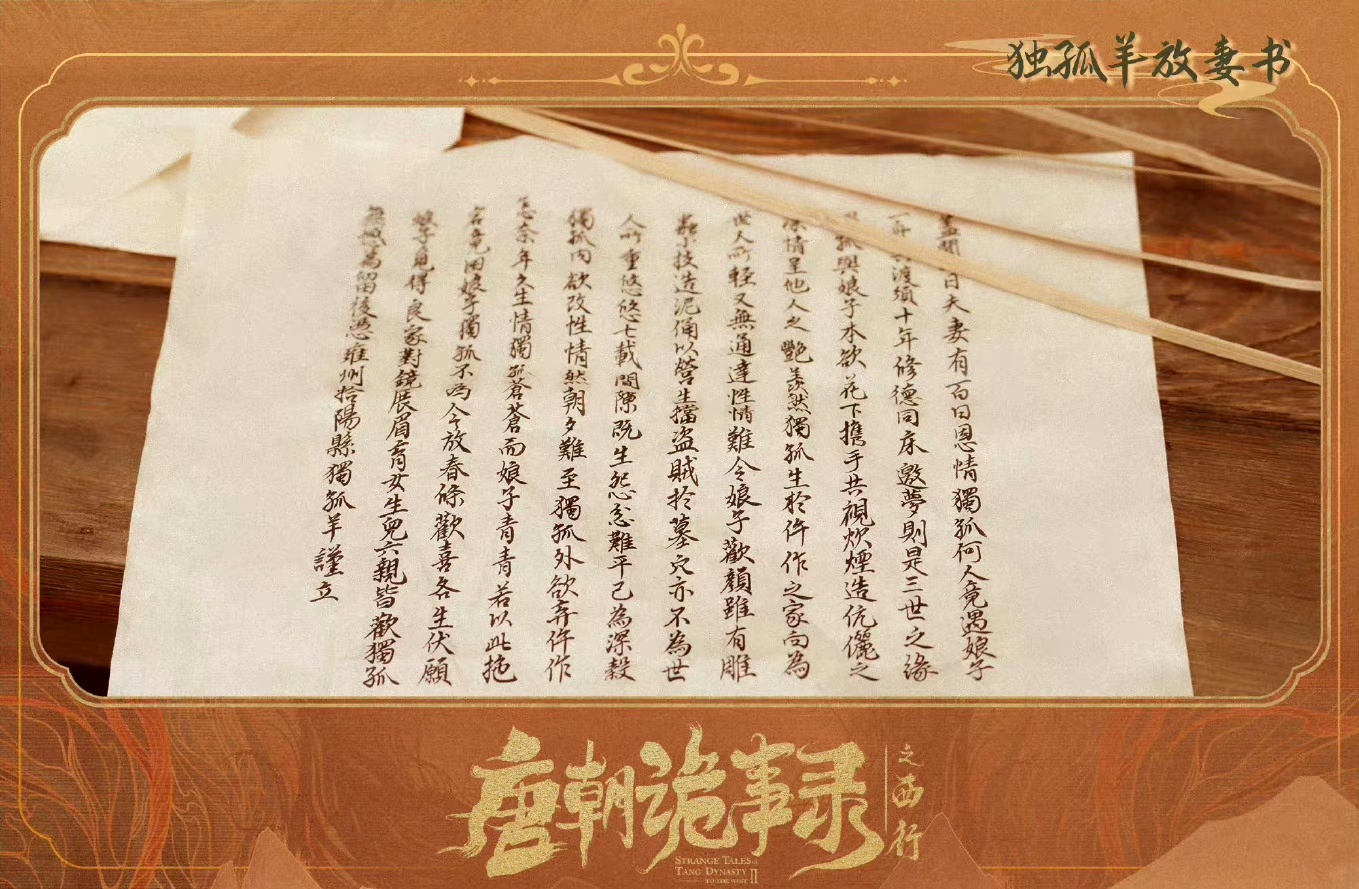 独孤羊放妻书
蓋聞日夫妻有百日恩情獨孤何人竟遇娘子
一舟渡須十年修德同床邀夢則是三世之緣
孤與娘子本欲花下攜手共視炊煙造伉儷之
深情呈他人之艷羨然獨孤生於仵作之家向為
世人所輕又無通達性情難令娘子歡顏雖有雕
蟲小技造泥俑以營生擋盜賊於墓穴亦不為世
人所重悠悠七載間隙既生怨忿難平已為深穀
獨孤內欲改性情然朝夕難至獨孤外欲弃仵作
怎奈年久生情獨孤蒼蒼而娘子青青若以此拖
竟困娘子獨孤不為今放春條歡喜各生伏願
娘子覓得良家對鏡展眉育女生兒六親皆歡獨孤
無憾為留後憑雍州拾陽縣獨孤羊謹立
唐朝诡事录
之西行
STRANGE TALES of
TANG DYNASTY II
TO THE WEST